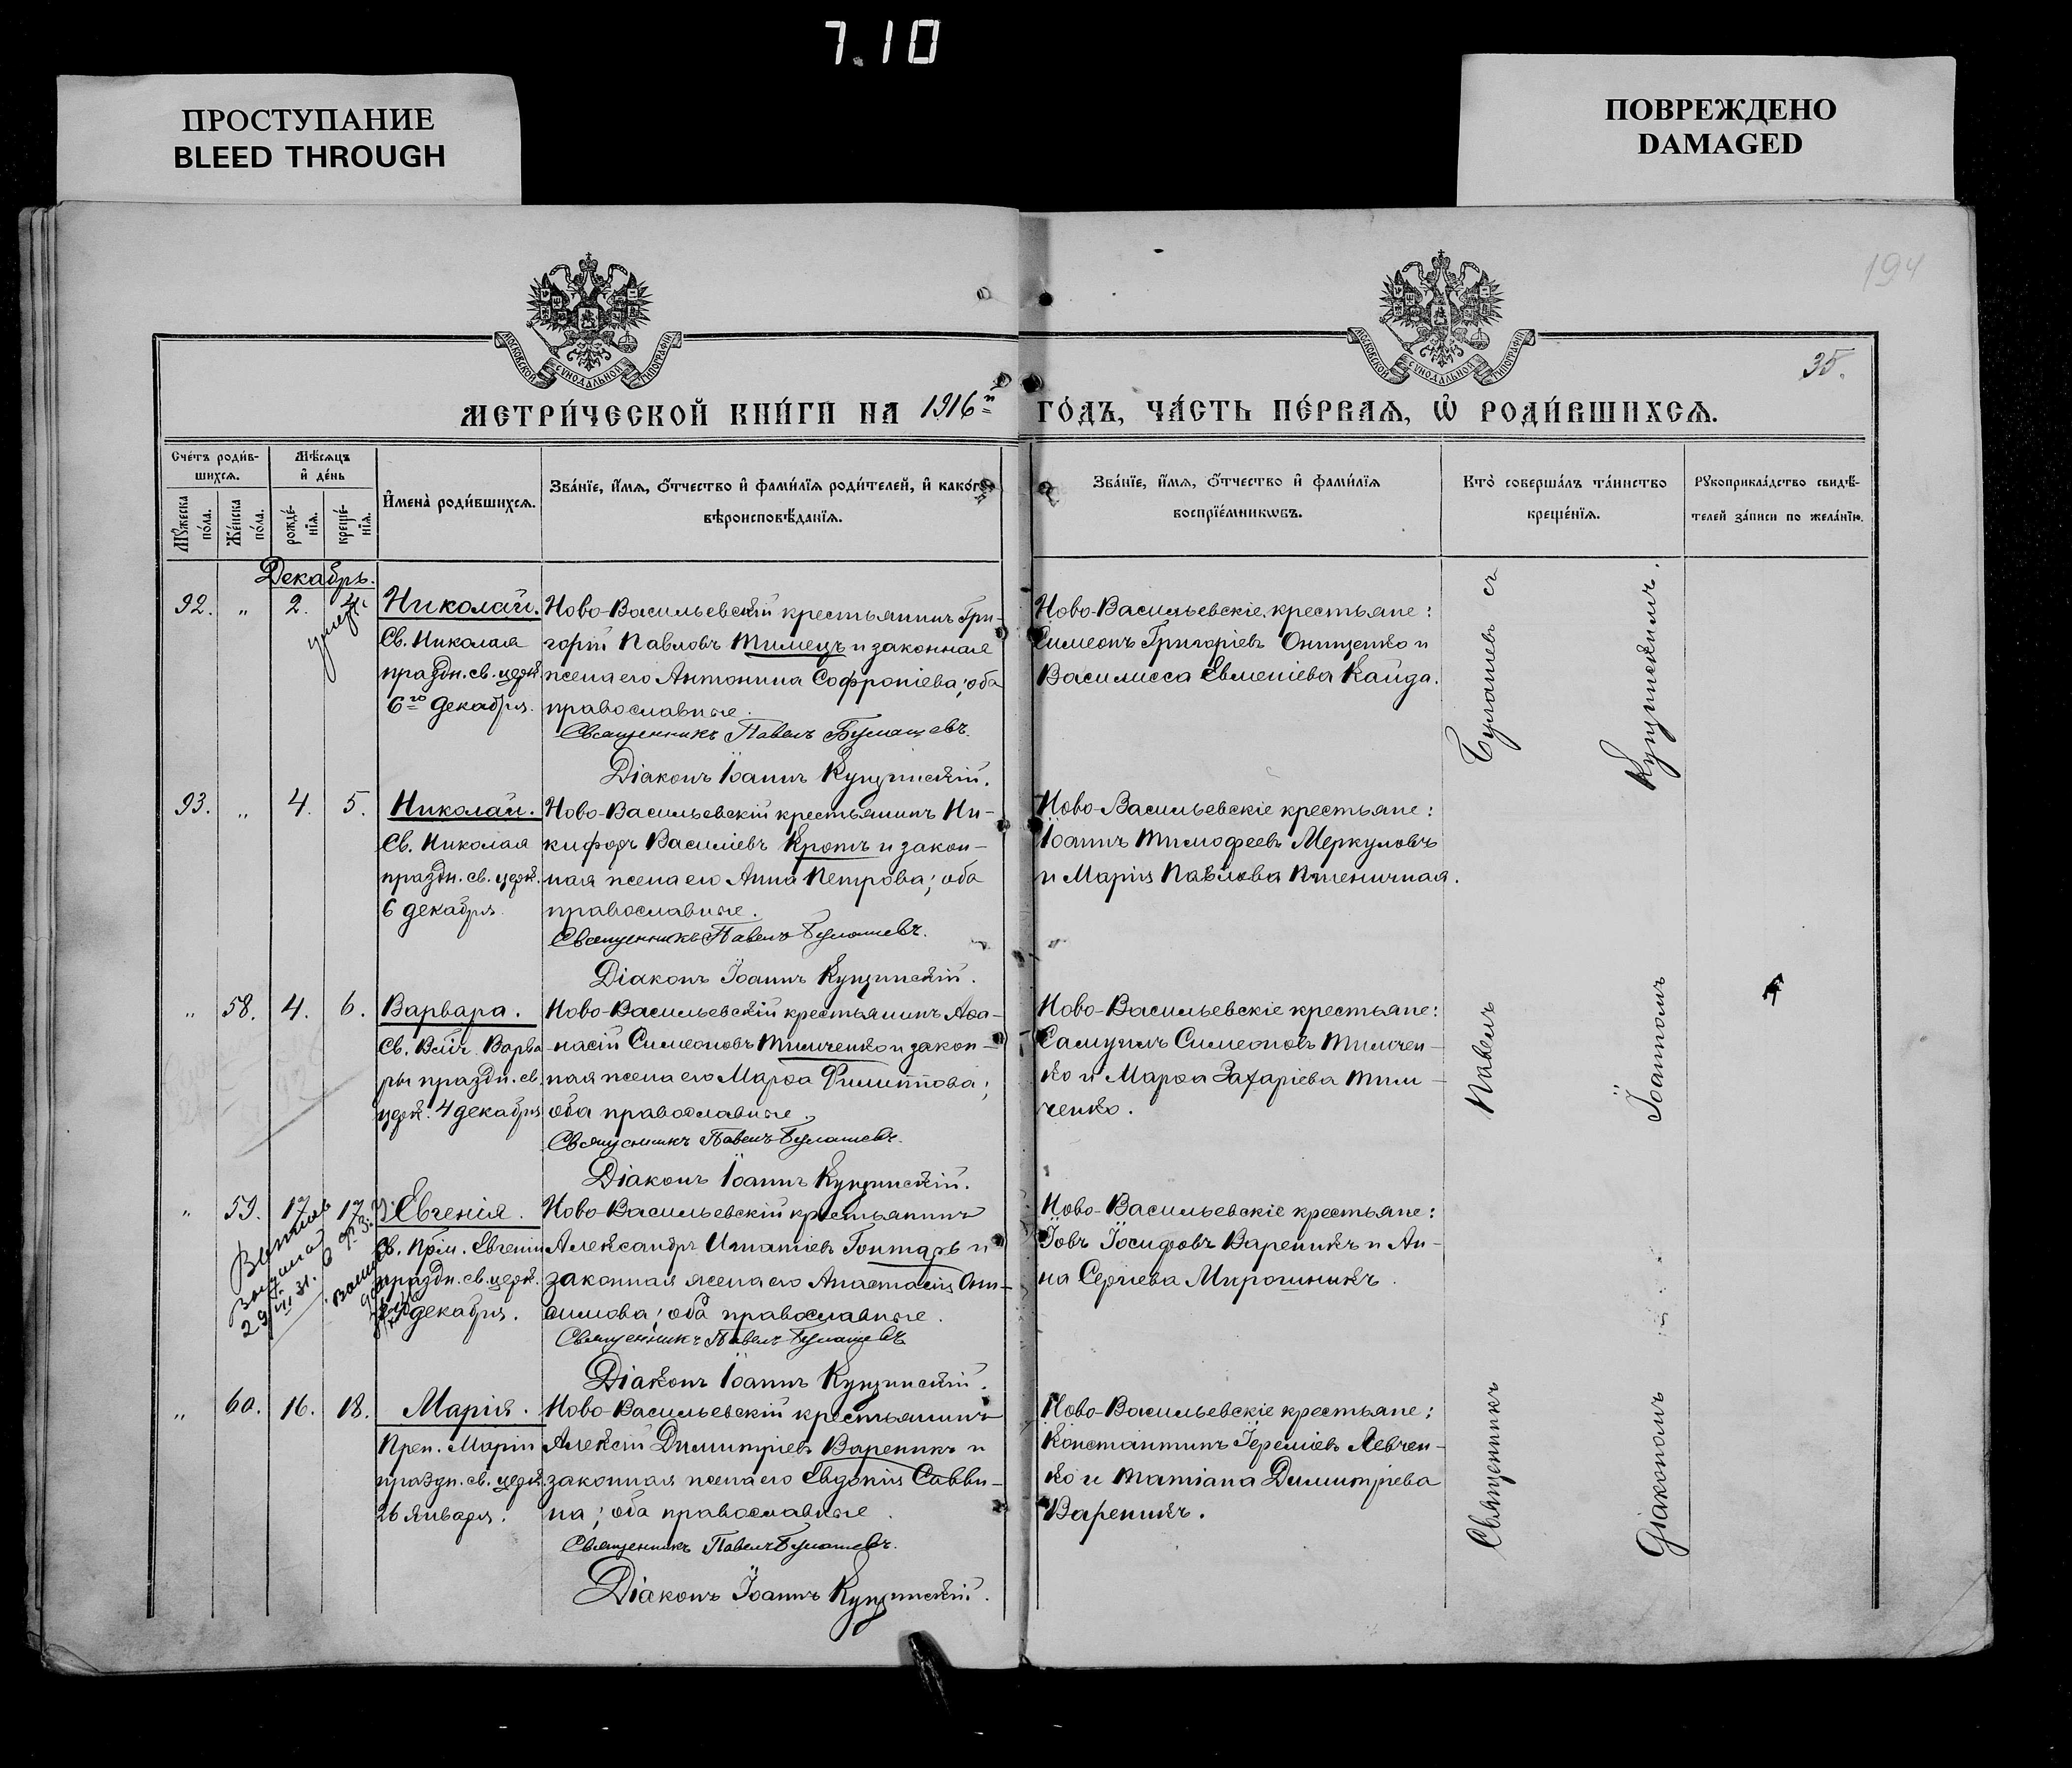 7.10
ПРОСТУПАНИЕ
BLEED THROUGH
ПОВРЕЖДЕНО
DAMAGED
194
МОСКОВСКОЙ СѴНОДАЛЬНОЙ ТИПОГРАФІИ
МОСКОВСКОЙ СѴНОДАЛЬНОЙ ТИПОГРАФІИ
35.
МЕТРИ́ЧЕСКОЙ КНИ́ГИ НА 1916й ГО́ДЪ, ЧА́СТЬ ПЕ́РВАѦ, Ѽ РОДИ́ВШИХСѦ.
Счéтъ роди́в-
шихсѧ.
Мѣ́сѧцъ
и҆ дéнь
Мꙋ́жеска пóла.
Жéнска пóла.
рождé-
нїѧ.
крещé-
нїѧ.
И҆менà роди́вшихсѧ.
Звáнїе, и҆́мѧ, ѻ҆́тчество и҆ фами́лїѧ роди́телей, и҆ какóгѡ
вѣроисповѣ́данїѧ.
Звáнїе, и҆́мѧ, ѻ҆́тчество и҆ фами́лїѧ
воспрїе́мникѡвъ.
Ктò совершáлъ тáинство
крещéнїѧ.
Рꙋкоприклáдство свидѣ́-
телей зáписи по желáнїю.
Декабрь.
92. „ 2. 4.
умер
Николай.
Св. Николая
праздн. св. церк.
6го декабря.
Ново-Васильевскій крестьянинъ Гри-
горій Павловъ Тимецъ и законная
жена его Антонина Софроніева; оба
православные.
Священникъ Павелъ Булашевъ.
Діаконъ Іоаннъ Купчинскій.
Ново-Васильевскіе крестьяне:
Симеонъ Григоріевъ Онищенко и
Василисса Евменіева Кайда.
93. „ 4. 5.
Николай.
Св. Николая
праздн. св. церк.
6 декабря.
Ново-Васильевскій крестьянинъ Ни-
кифоръ Василіевъ Кротъ и закон-
ная жена его Анна Петрова; оба
православные.
Священникъ Павелъ Булашевъ.
Діаконъ Іоаннъ Купчинскій.
Ново-Васильевскіе крестьяне:
Іоаннъ Тимофеевъ Меркуловъ
и Марія Павлова Пшеничная.
„ 58. 4. 6.
Варвара.
Св. Влйч. Варва
ры праздн. св.
церк. 4 декабря
Ново-Васильевскій крестьянинъ Аѳа-
насій Симеоновъ Тимченко и закон-
ная жена его Марѳа Филиппова;
оба православные.
Священникъ Павелъ Булашевъ.
Діаконъ Іоаннъ Купчинскій.
Ново-Васильевскіе крестьяне:
Самуилъ Симеоновъ Тимчен-
ко и Марѳа Захаріева Тим-
ченко.
„ 59. 17 17
29/VI. 31.
Евгенія.
Св. Прм. Евгеніи
праздн. св. церк.
декабря.
Ново-Васильевскій крестьянинъ
Александръ Игнатіевъ Гонтарь и
законная жена его Анастасія Они-
симова; оба православные.
Священникъ Павелъ Булашевъ
Діаконъ Іоаннъ Купчинскій.
Ново-Васильевскіе крестьяне:
Іовъ Іосифовъ Вареникъ и Ан-
на Сергіева Мирошникъ.
„ 60. 16. 18.
Марія.
Преп. Маріи
праздн. св. церк.
26 Января.
Ново-Васильевскій крестьянинъ
Алексій Димитріевъ Вареникъ и
законная жена его Евдокія Савви-
на; оба православные.
Священникъ Павелъ Булашевъ.
Діаконъ Іоаннъ Купчинскій.
Ново-Васильевскіе крестьяне:
Константинъ Іереміевъ Левчен-
ко и Татіана Димитріева
Вареникъ.
Священникъ Павелъ Булашевъ съ
Діакономъ Іоанномъ Купчинскимъ.